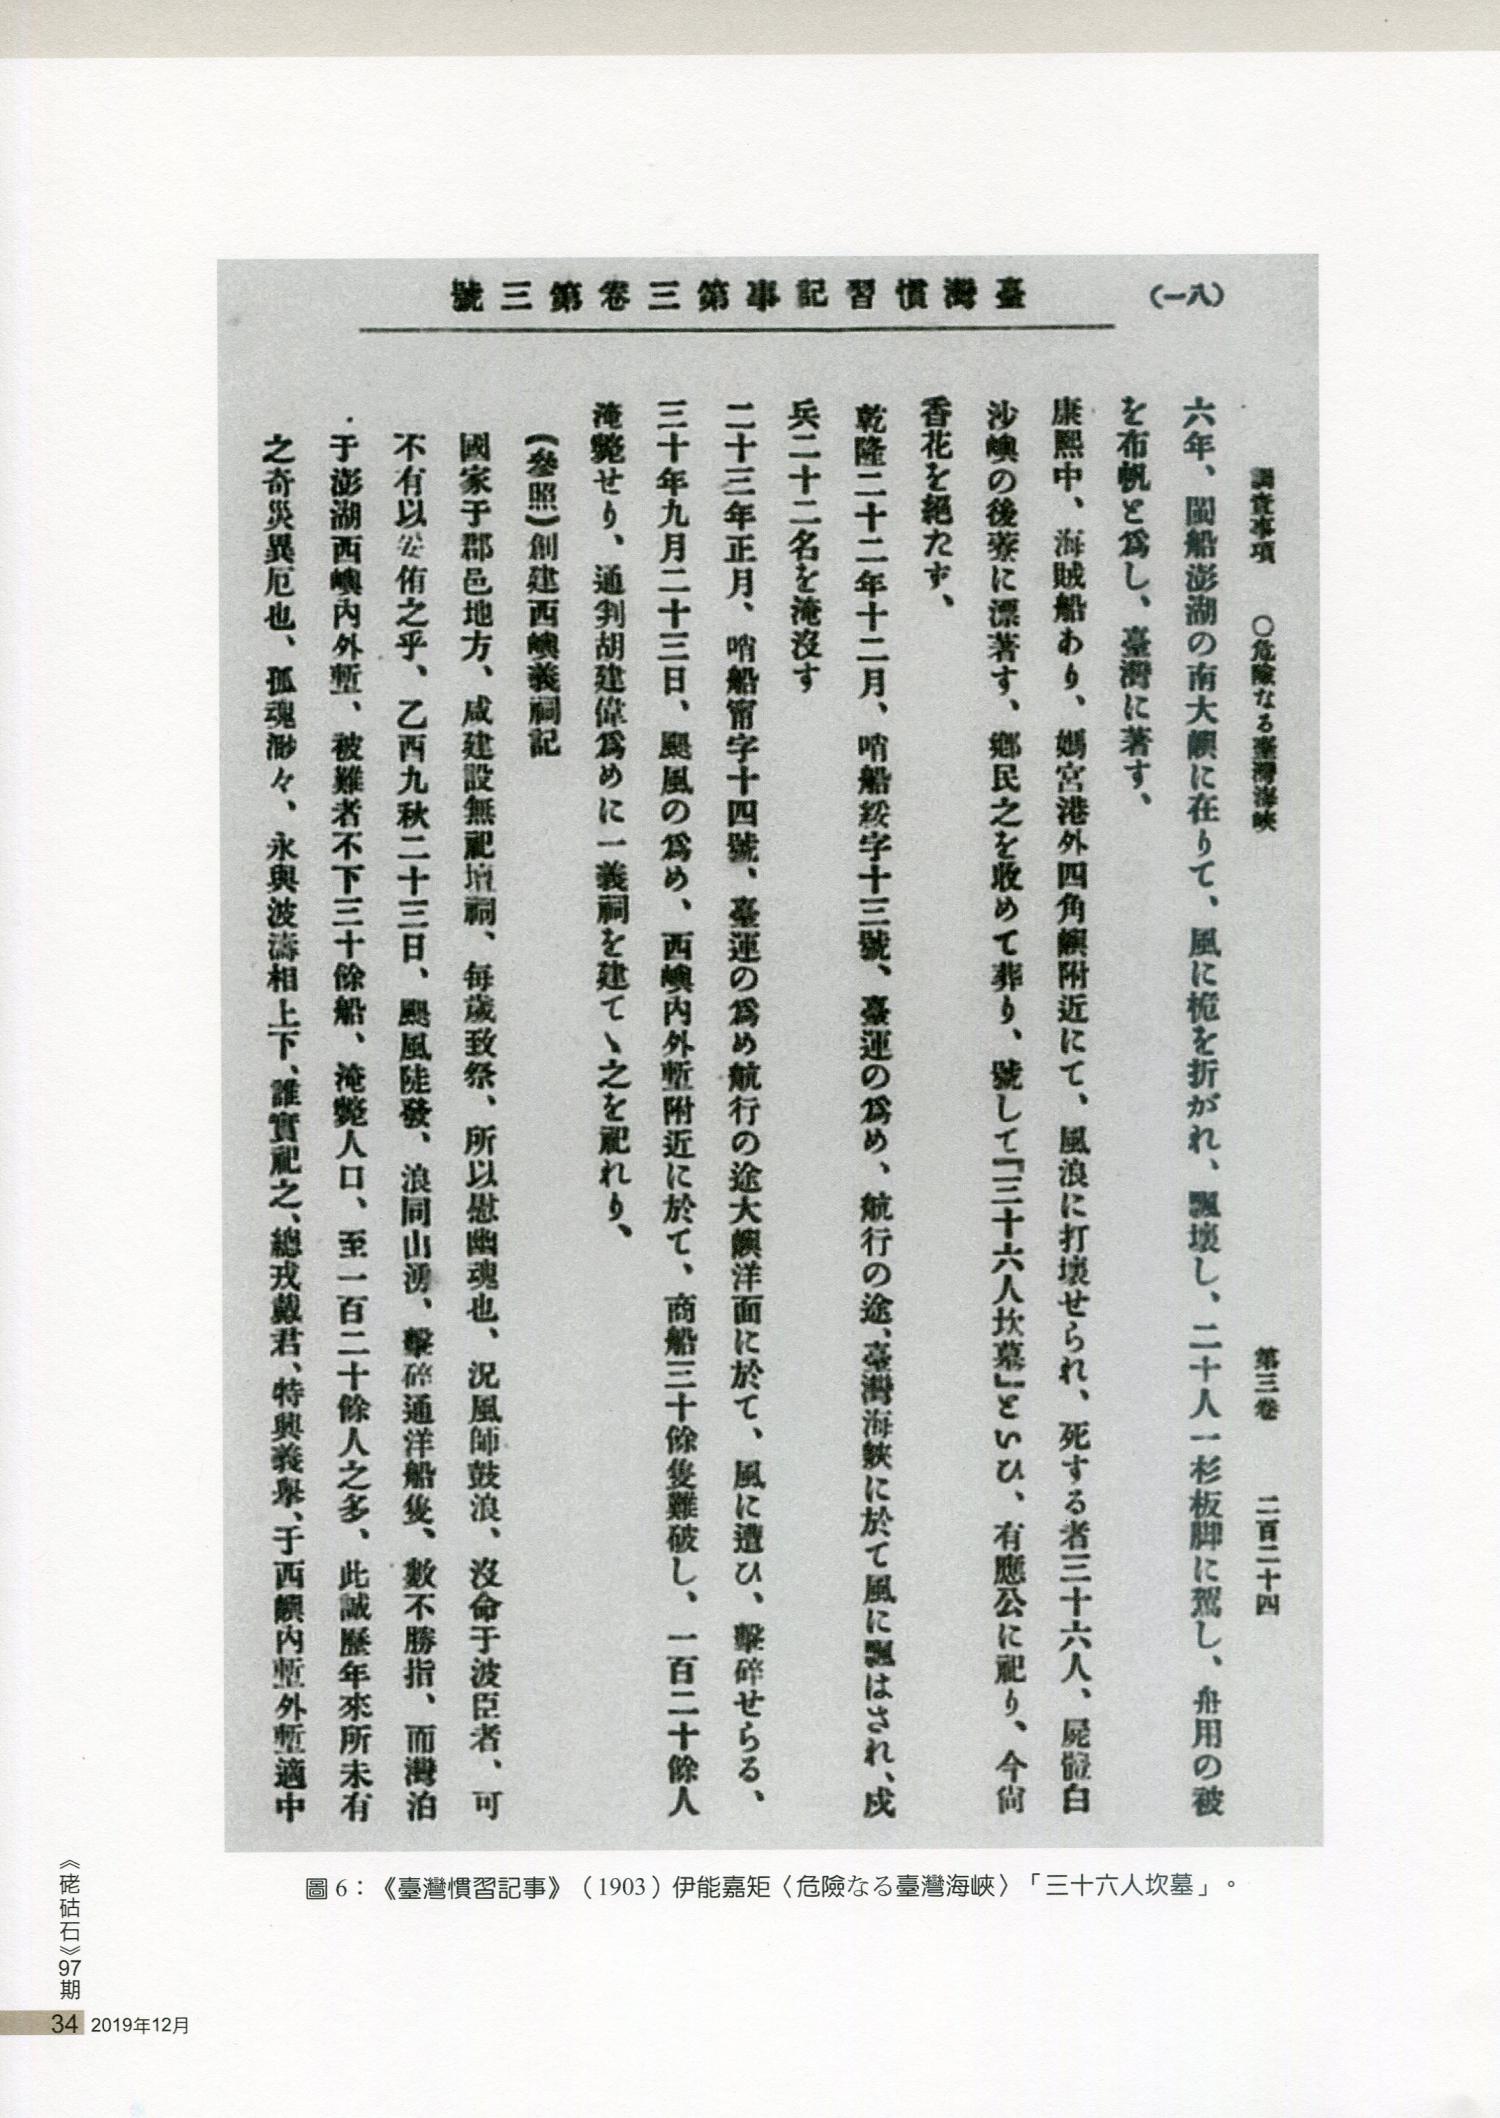 臺灣慣習記事第三卷第三號
（一八）
調査事項　〇危險なる臺灣海峽　第三卷　二百二十四
六年、閩船澎湖の南大嶼に在りて、風に桅を折がれ、飄壞し、二十人一杉板脚に駕し、舟用の被
を布帆と爲し、臺灣に著す、
康熙中、海賊船あり、媽宮港外四角嶼附近にて、風浪に打壞せられ、死する者三十六人、屍骸白
沙嶼の後寮に漂著す、鄕民之を收めて葬り、號して『三十六人坎墓』といひ、有應公に祀り、今尙
香花を絕たず、
乾隆二十二年十二月、哨船綏字十三號、臺運の爲め、航行の途、臺灣海峽に於て風に飄はされ、戍
兵二十二名を淹沒す
二十三年正月、哨船甯字十四號、臺運の爲め航行の途大嶼洋面に於て、風に遭ひ、擊碎せらる、
三十年九月二十三日、颶風の爲め、西嶼內外塹附近に於て、商船三十餘隻難破し、一百二十餘人
淹斃せり、通判胡建偉爲めに一義祠を建てゝ之を祀れり、
（參照）創建西嶼義祠記
國家于郡邑地方、咸建設無祀壇祠、每歲致祭、所以慰幽魂也、況風師鼓浪、沒命于波臣者、可
不有以妥侑之乎、乙酉九秋二十三日、颶風陡發、浪同山湧、擊碎通洋船隻、數不勝指、而灣泊
于澎湖西嶼內外塹、被難者不下三十餘船、淹斃人口、至一百二十餘人之多、此誠歷年來所未有
之奇災異厄也、孤魂渺々、永與波濤相上下、誰實祀之、總戎戴君、特興義擧、于西嶼內塹外塹適中
圖 6：《臺灣慣習記事》（1903）伊能嘉矩〈危險なる臺灣海峽〉「三十六人坎墓」。
《硓𥑮石》97期
34 2019年12月